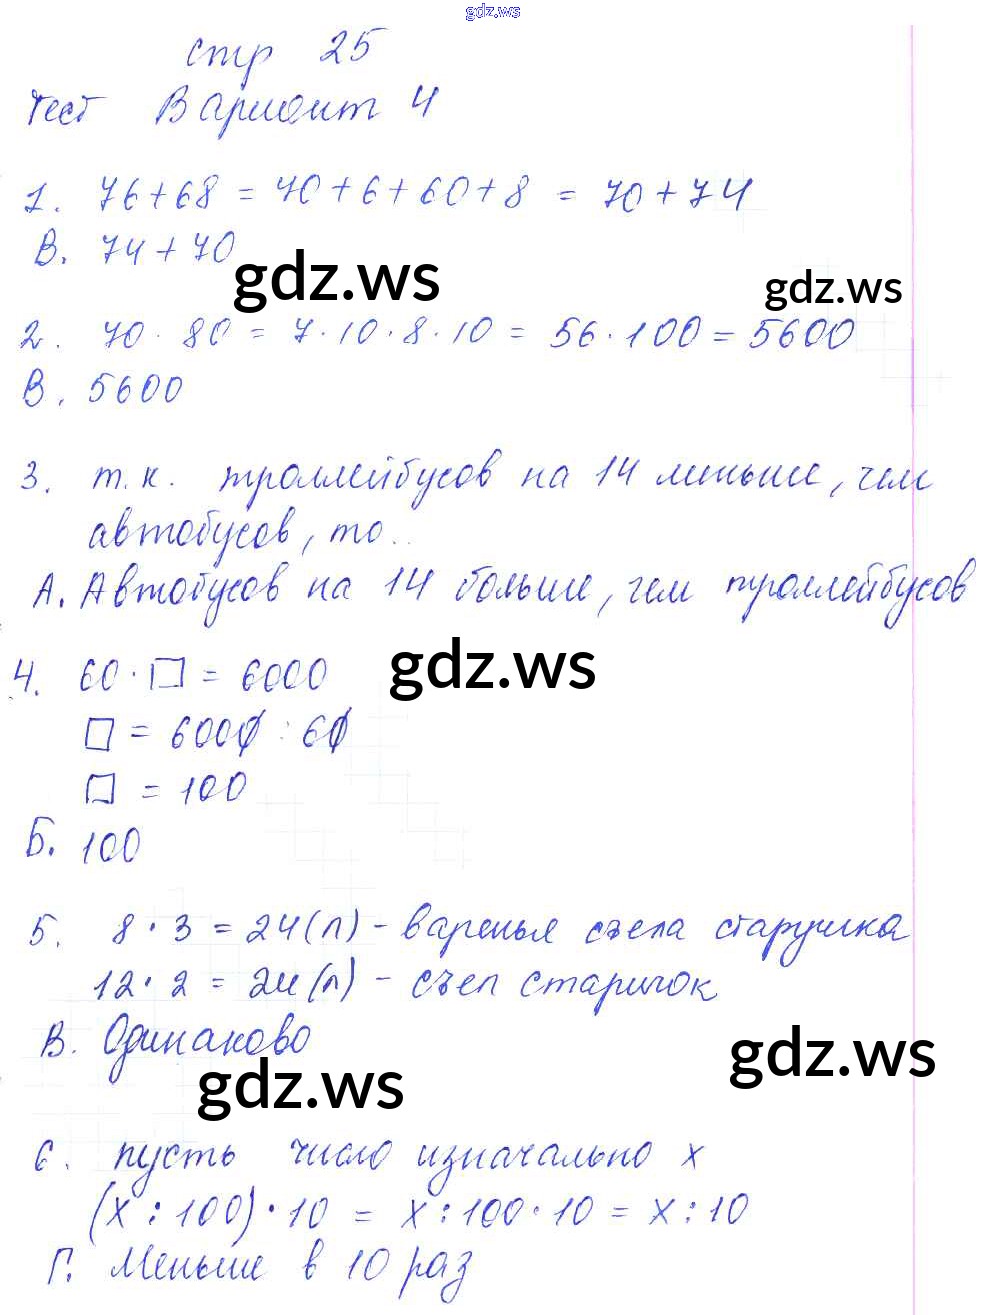 gdz.ws
стр 25
Тест Вариант 4
1. 76+68 = 70+6+60+8 = 70+74
В. 74+70
gdz.ws
gdz.ws
2. 70 · 80 = 7·10·8·10 = 56·100 = 5600
В. 5600
3. т.к. троллейбусов на 14 меньше, чем
автобусов, то..
А. Автобусов на 14 больше, чем троллейбусов
4. 60·□ = 6000
gdz.ws
□ = 6000 : 60
□ = 100
Б. 100
5. 8·3 = 24(л) - варенья съела старушка
12·2 = 24(л) - съел старичок
В. Одинаково
gdz.ws
gdz.ws
6. пусть число изначально x
(x : 100)·10 = x : 100·10 = x : 10
Г. Меньше в 10 раз